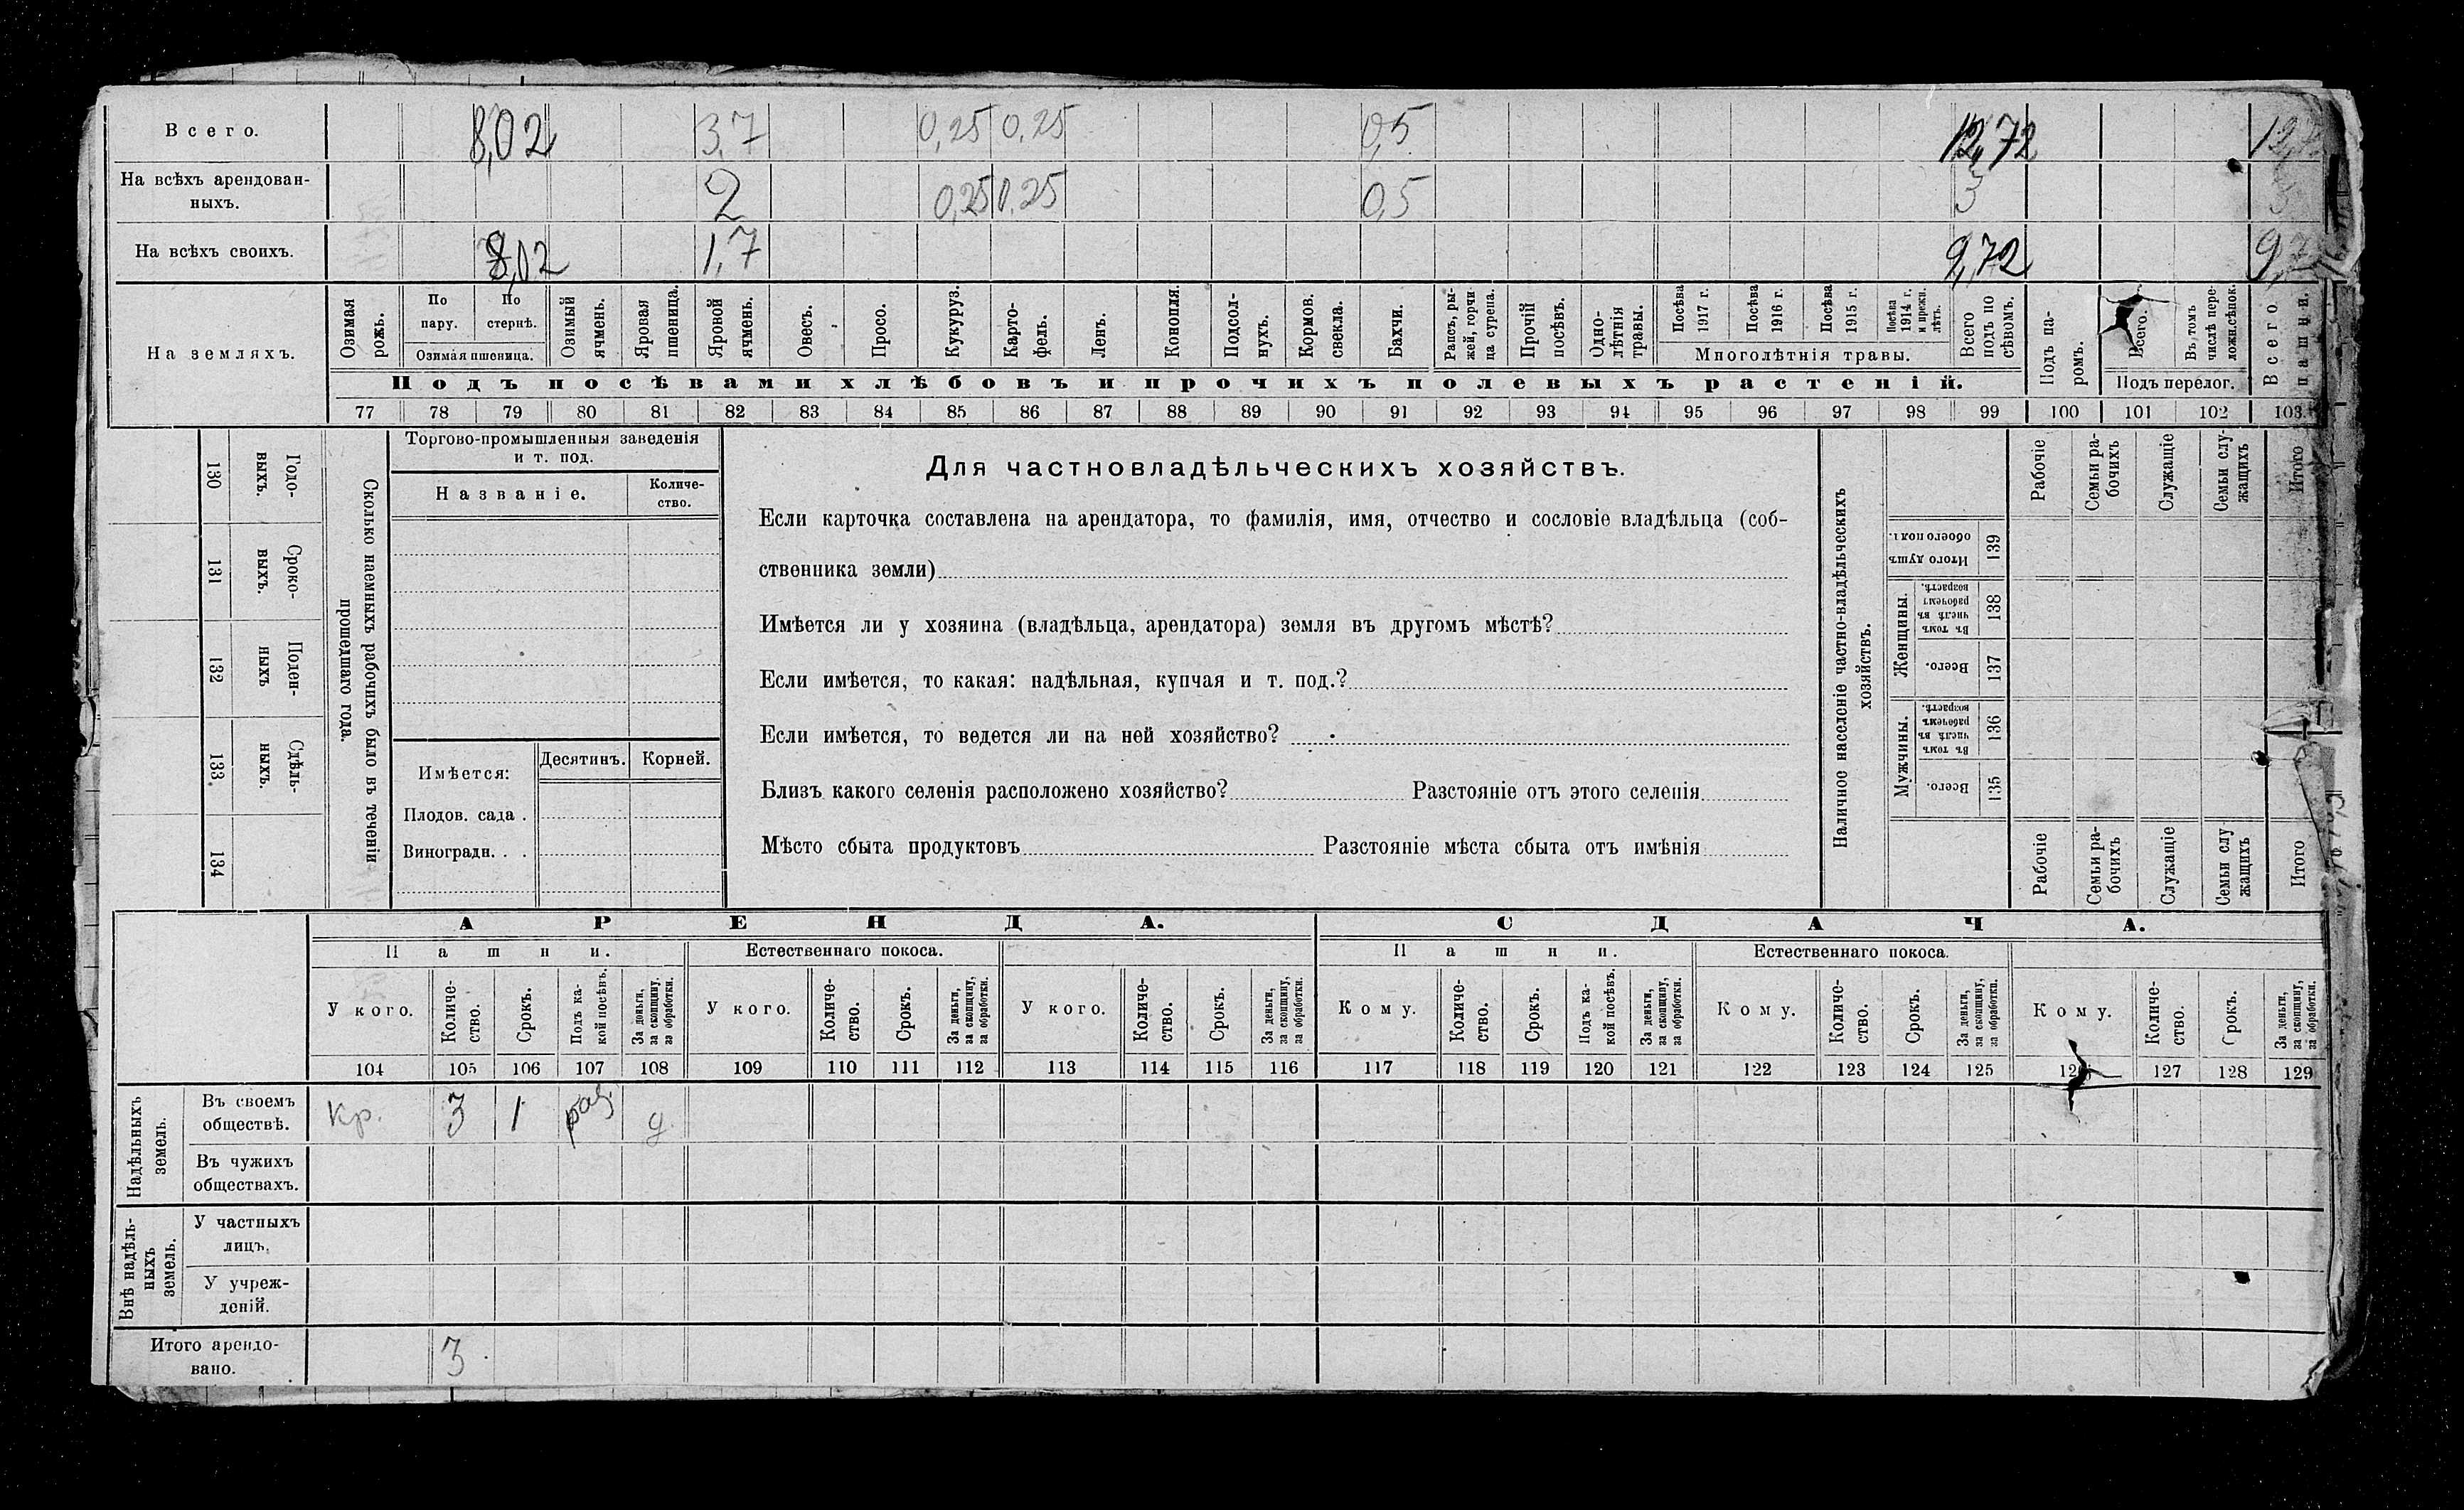 Всего. 8,02 3,7 0,25 0,25 0,5 12,72
На всѣхъ арендован-
ныхъ. 2 0,25 0,25 0,5 3
На всѣхъ своихъ. 8,02 1,7 9,72
На земляхъ.
Озимая рожь.
По пару.
По стернѣ.
Озимая пшеница.
Озимый ячмень.
Яровая пшеница.
Яровой ячмень.
Овесъ.
Просо.
Кукуруз.
Карто-
фель.
Ленъ.
Конопля.
Подсол-
нухъ.
Кормов. свекла.
Бахчи.
Рапсъ, ры-
жей, горчи
ца сурепа.
Прочій посѣвъ.
Одно-
лѣтнія
травы.
Посѣва 1917 г.
Посѣва 1916 г.
Посѣва 1915 г.
Посѣва 1914 г. и прежн. лѣтъ.
Многолѣтнія травы.
Всего подъ по
сѣвомъ.
Подъ па-
ромъ.
Всего.
Въ томъ числѣ пере-
ложн.сѣнок.
Подъ перелог.
Всего пашни.
Подъ посѣвами хлѣбовъ и прочихъ полевыхъ растеній.
77 78 79 80 81 82 83 84 85 86 87 88 89 90 91 92 93 94 95 96 97 98 99 100 101 102 103
130 Годо-
выхъ.
131 Сроко-
выхъ.
132 Поден-
ныхъ
133 Сдѣль-
ныхъ.
134
Сколько наемныхъ рабочихъ было въ теченіи
прошедшаго года.
Торгово-промышленныя заведенія
и т. под.
Названіе. Количе-
ство.
Имѣется: Десятинъ. Корней.
Плодов. сада .
Виноградн. . .
Для частновладѣльческихъ хозяйствъ.
Если карточка составлена на арендатора, то фамилія, имя, отчество и сословіе владѣльца (соб-
ственника земли)
Имѣется ли у хозяина (владѣльца, арендатора) земля въ другомъ мѣстѣ?
Если имѣется, то какая: надѣльная, купчая и т. под.?
Если имѣется, то ведется ли на ней хозяйство?
Близъ какого селенія расположено хозяйство? Разстояніе отъ этого селенія
Мѣсто сбыта продуктовъ Разстояніе мѣста сбыта отъ имѣнія
Наличное населеніе частно-владѣльческихъ
хозяйствъ.
Рабочіе
Семьи ра-
бочихъ
Служащіе
Семьи слу-
жащихъ
Итого
Итого душъ обоего пола. 139
Женщины.
Въ томъ числѣ въ рабочемъ возрастѣ. 138
Всего. 137
Мужчины.
Въ томъ числѣ въ рабочемъ возрастѣ. 136
Всего. 135
Рабочіе
Семьи ра-
бочихъ
Служащіе
Семьи слу
жащихъ
Итого
АРЕНДА. СДАЧА.
Пашни. Естественнаго покоса. Пашни. Естественнаго покоса.
У кого.
Количе-
ство.
Срокъ.
Подъ ка-
кой посѣвъ.
За деньги, за скопщину, за обработки.
У кого.
Количе-
ство.
Срокъ.
За деньги, за скопщину, за обработки.
У кого.
Количе-
ство.
Срокъ.
За деньги, за скопщину, за обработки.
Кому.
Количе-
ство.
Срокъ.
Подъ ка-
кой посѣвъ.
За деньги, за скопщину, за обработки.
Кому.
Количе-
ство.
Срокъ.
За деньги, за скопщину, за обработки.
Кому.
Количе-
ство.
Срокъ.
За деньги, за скопщину, за обработки.
104 105 106 107 108 109 110 111 112 113 114 115 116 117 118 119 120 121 122 123 124 125 126 127 128 129
Надѣльныхъ
земель.
Въ своемъ
обществѣ. Кр. 3 1 раз. д.
Въ чужихъ
обществахъ.
Внѣ надѣль-
ныхъ
земель.
У частныхъ
лицъ.
У учреж-
деній.
Итого арендо-
вано. 3